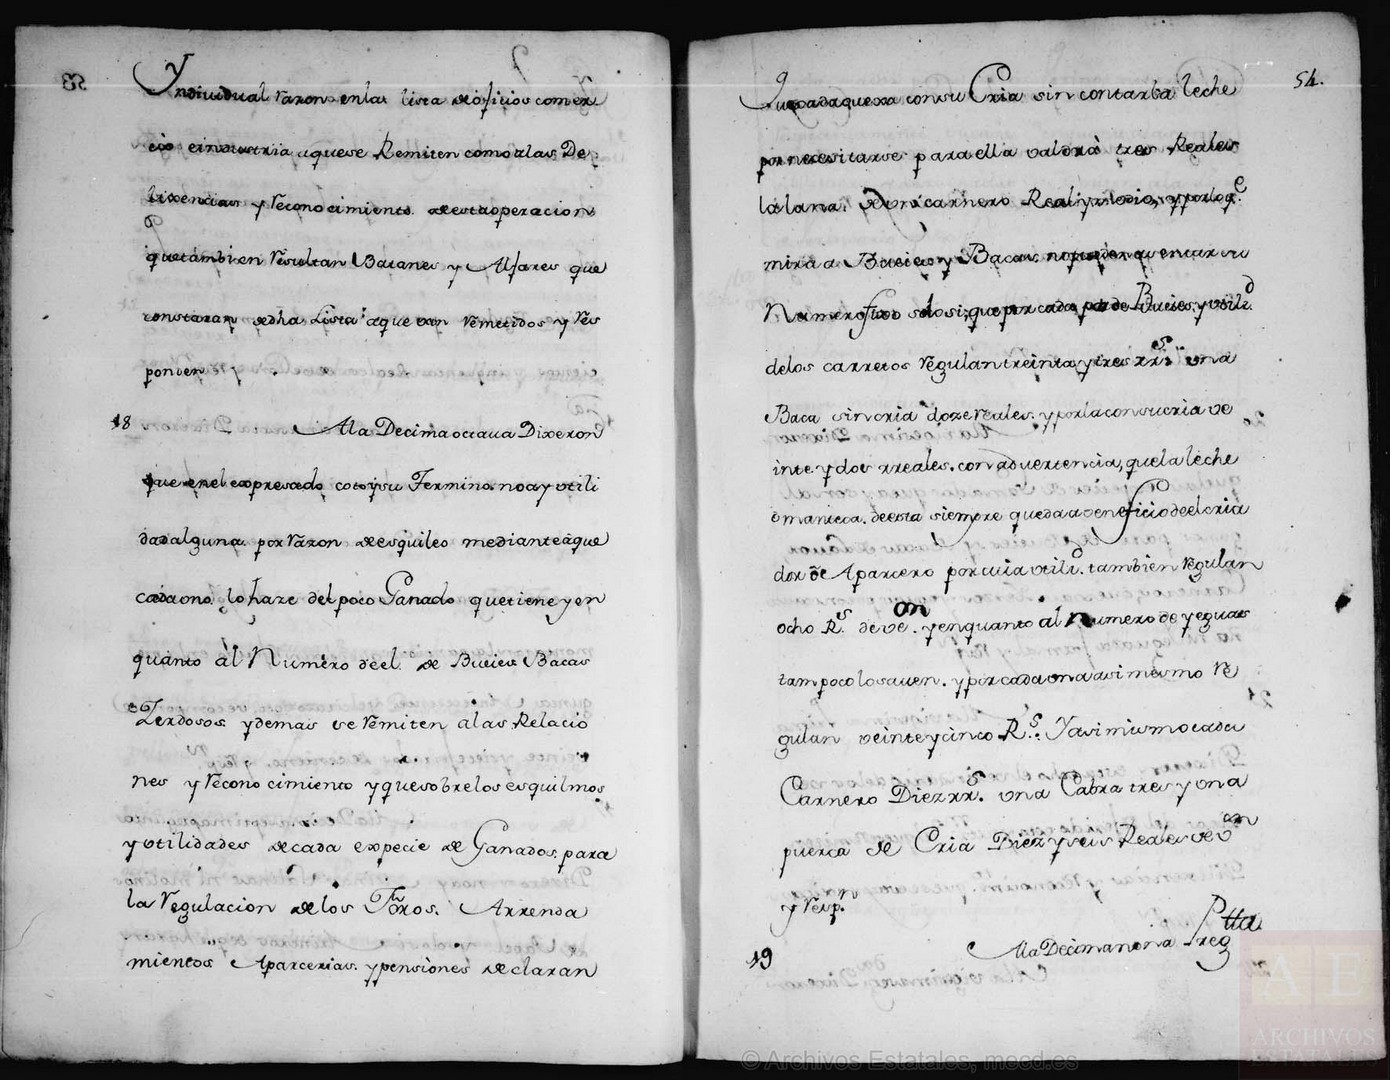 Yndividual Razon enla lista deofizios comer
cio eindustria aquese Remiten comoalas De
lixencias y Reconocimiento deestaoperacion
quetambien Resultan Batanes y Alfares que
constaran dedha Lista aque van Remitidos y Res
ponden
18 Ala Decimaoctaua Dixeron
que enel expresado cotoysu Termino noay utili
dadalguna por Razon deesquileo medianteàque
cadauno lohaze delpoco Ganado quetiene yen
quanto àl Numèro deel de Bueies Bacas
Zerdosos ydemas se Remiten alas Relacio
nes y Reconocimiento yquesobrelos esquilmos
y utilidades decada expecie de Ganados para
la Regulacion delos Foros. Arrenda
mientos Aparcerias ypensiones declaran
54.
Quecadaquexa consu Cria sin contarla leche
por nezesitarse para ella valdrà tres Reales
la lana deun carnero Realymedio, yporloqe
mira a Bueies y Bacas nopueden aseñtar su
Numerofixo solosi, quepor cada par de Bueies y utilid
delos carretos Regulan treinta y tres rrs una
Baca sincria doze reales yporlaconsucria ve
inte ydos rreales. con aduertencia, quela leche
o manteca deesta siempre queda a beneficio deelcria
dor òe Aparcero por cuia utilid. tambien Regulan
ocho Rs devon. yenquanto al Numero de yeguas
tampoco losauen. ypor cada una asimesmo Re
gulan veinteycinco Rs. Yasimismocada
Carnero Diez rrs. una Cabra tres y una
puerca de Cria Diez y seis Reales devon
y Respn.
19 Ala Decimanona Pregtta
© Archivos Estatales, mecd.es
AE
ARCHIVOS
ESTATALES